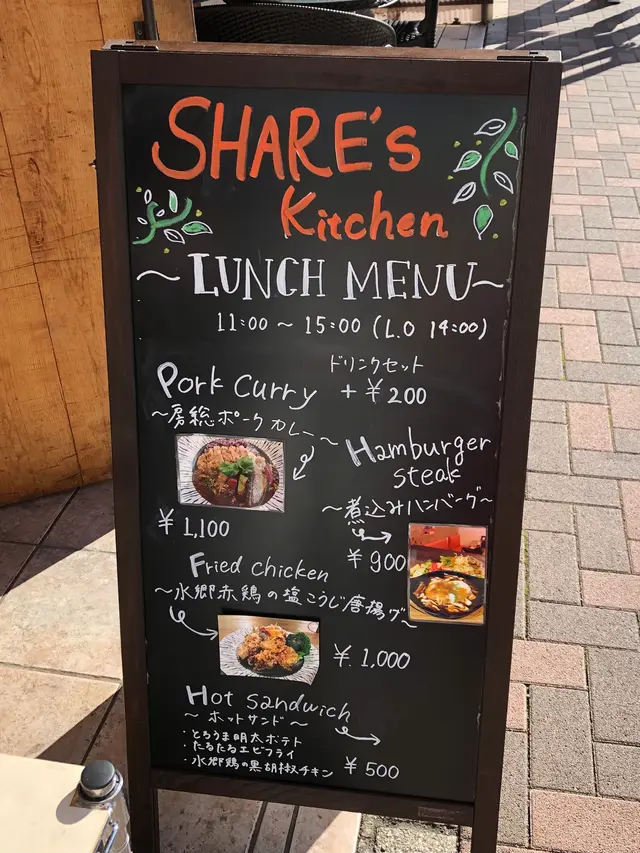 SHARE's
Kitchen
~LUNCH MENU~
11:00 ~ 15:00 (L.O 14:00)
ドリンクセット
+ ¥200
Pork curry
~房総ポークカレー~
¥1,100
Hamburger
steak
~煮込みハンバーグ~
¥900
Fried chicken
~水郷赤鶏の塩こうじ唐揚げ~
¥1,000
Hot sandwich
~ホットサンド~
・とろうま明太ポテト
・たるたるエビフライ
・水郷鶏の黒胡椒チキン
¥500